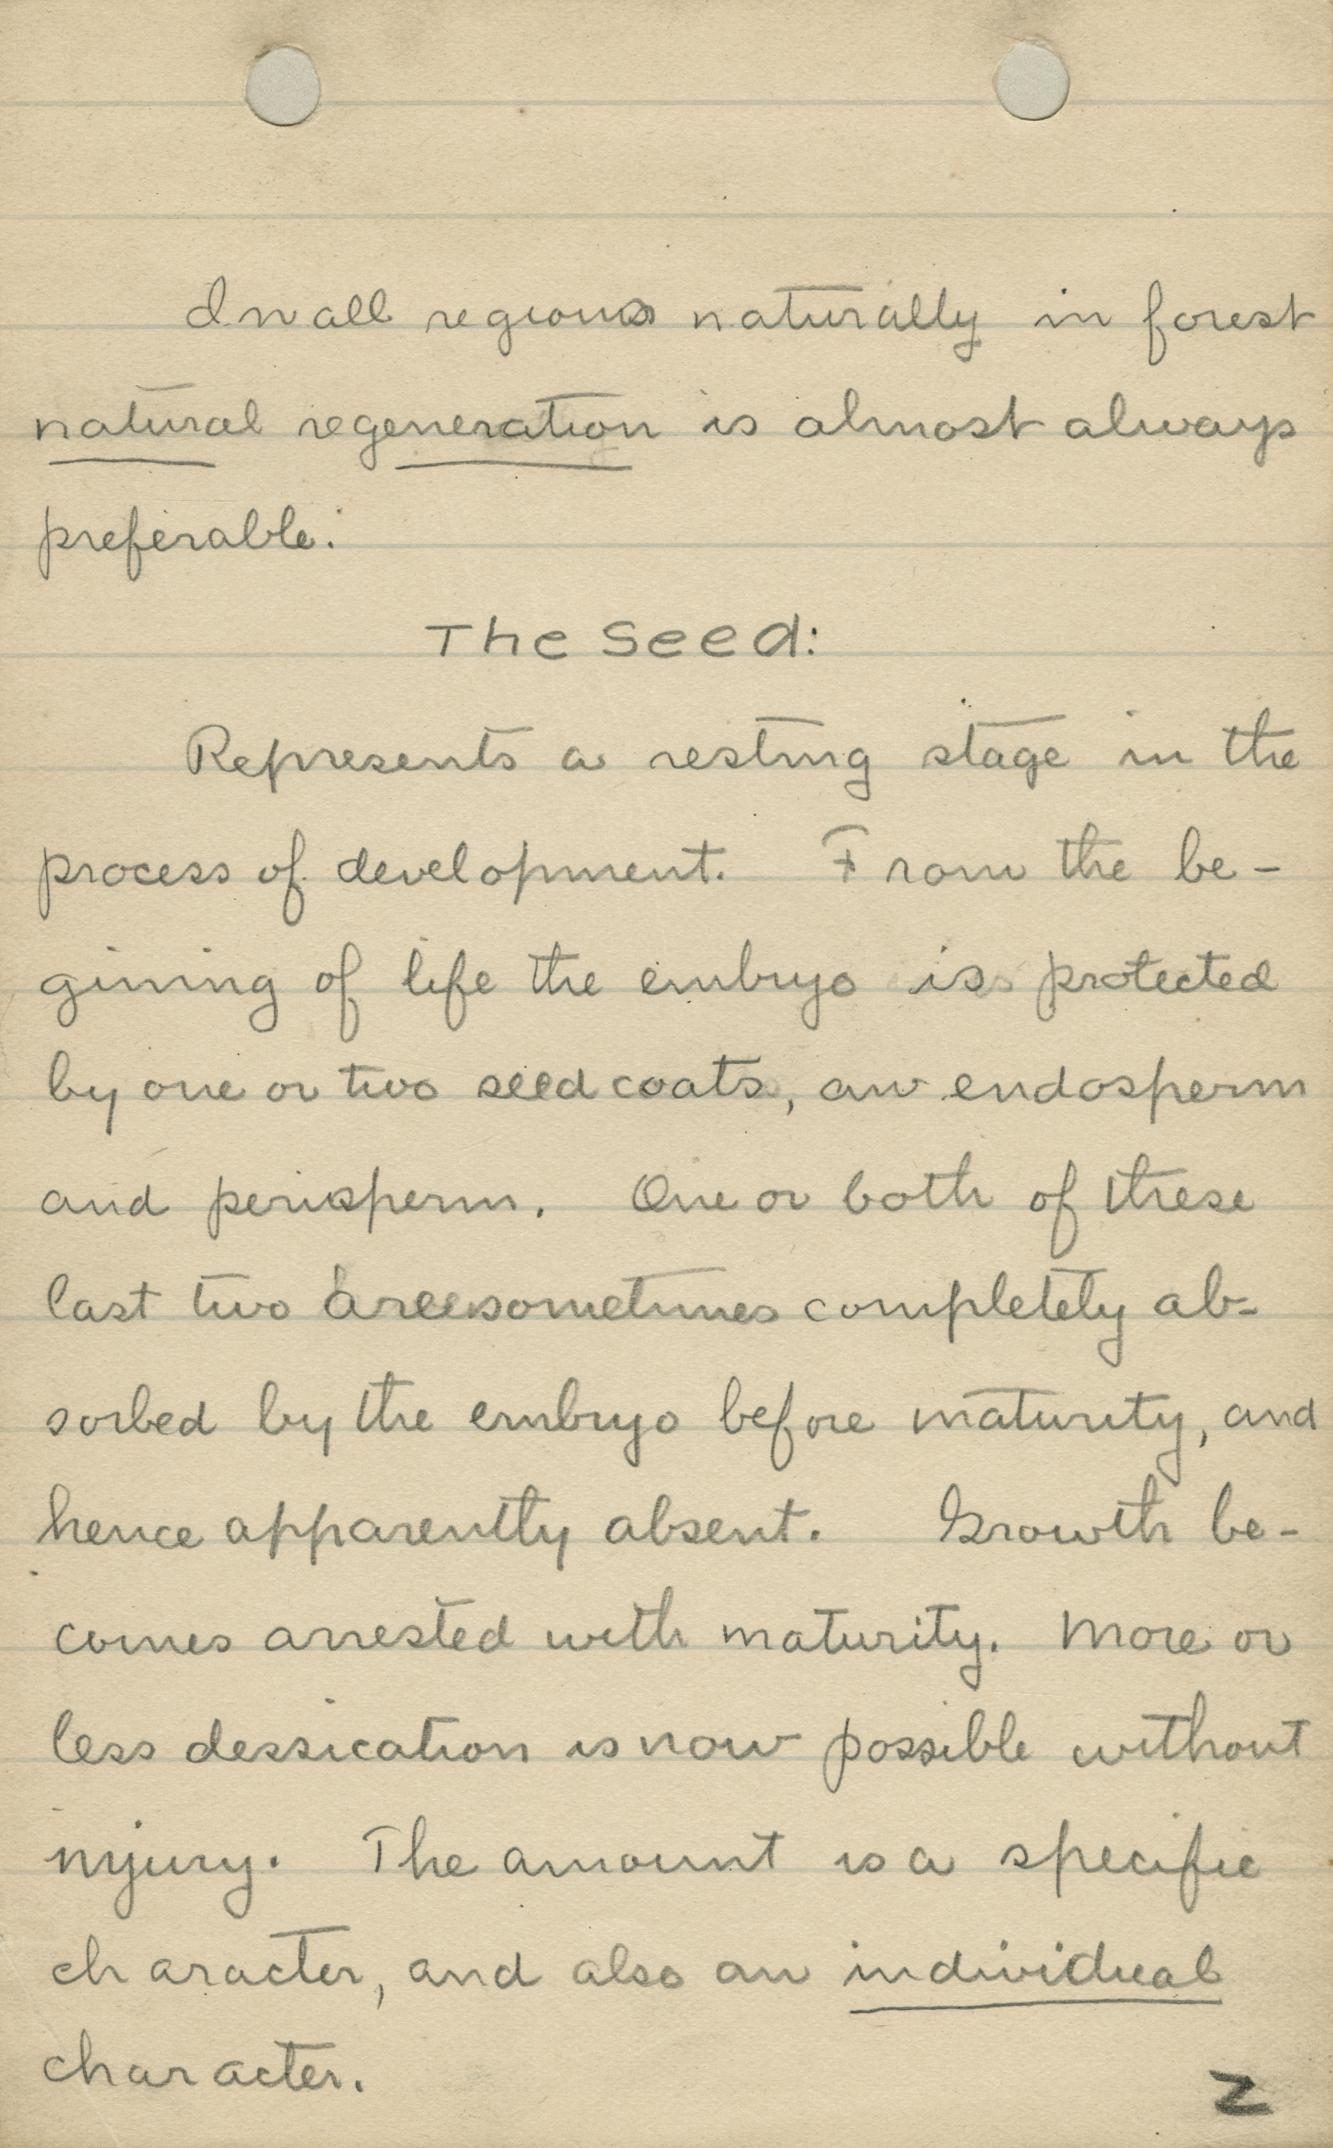 In all regions naturally in forest
natural regeneration is almost always
preferable.
The Seed:
Represents a resting stage in the
process of development. From the be-
gining of life the embryo is protected
by one or two seed coats, an endosperm
and perisperm. One or both of these
last two are sometimes completely ab-
sorbed by the embryo before maturity, and
hence apparently absent. Growth be-
comes arrested with maturity. More or
less dessication is now possible without
injury. The amount is a specific
character, and also an individual
character.
2